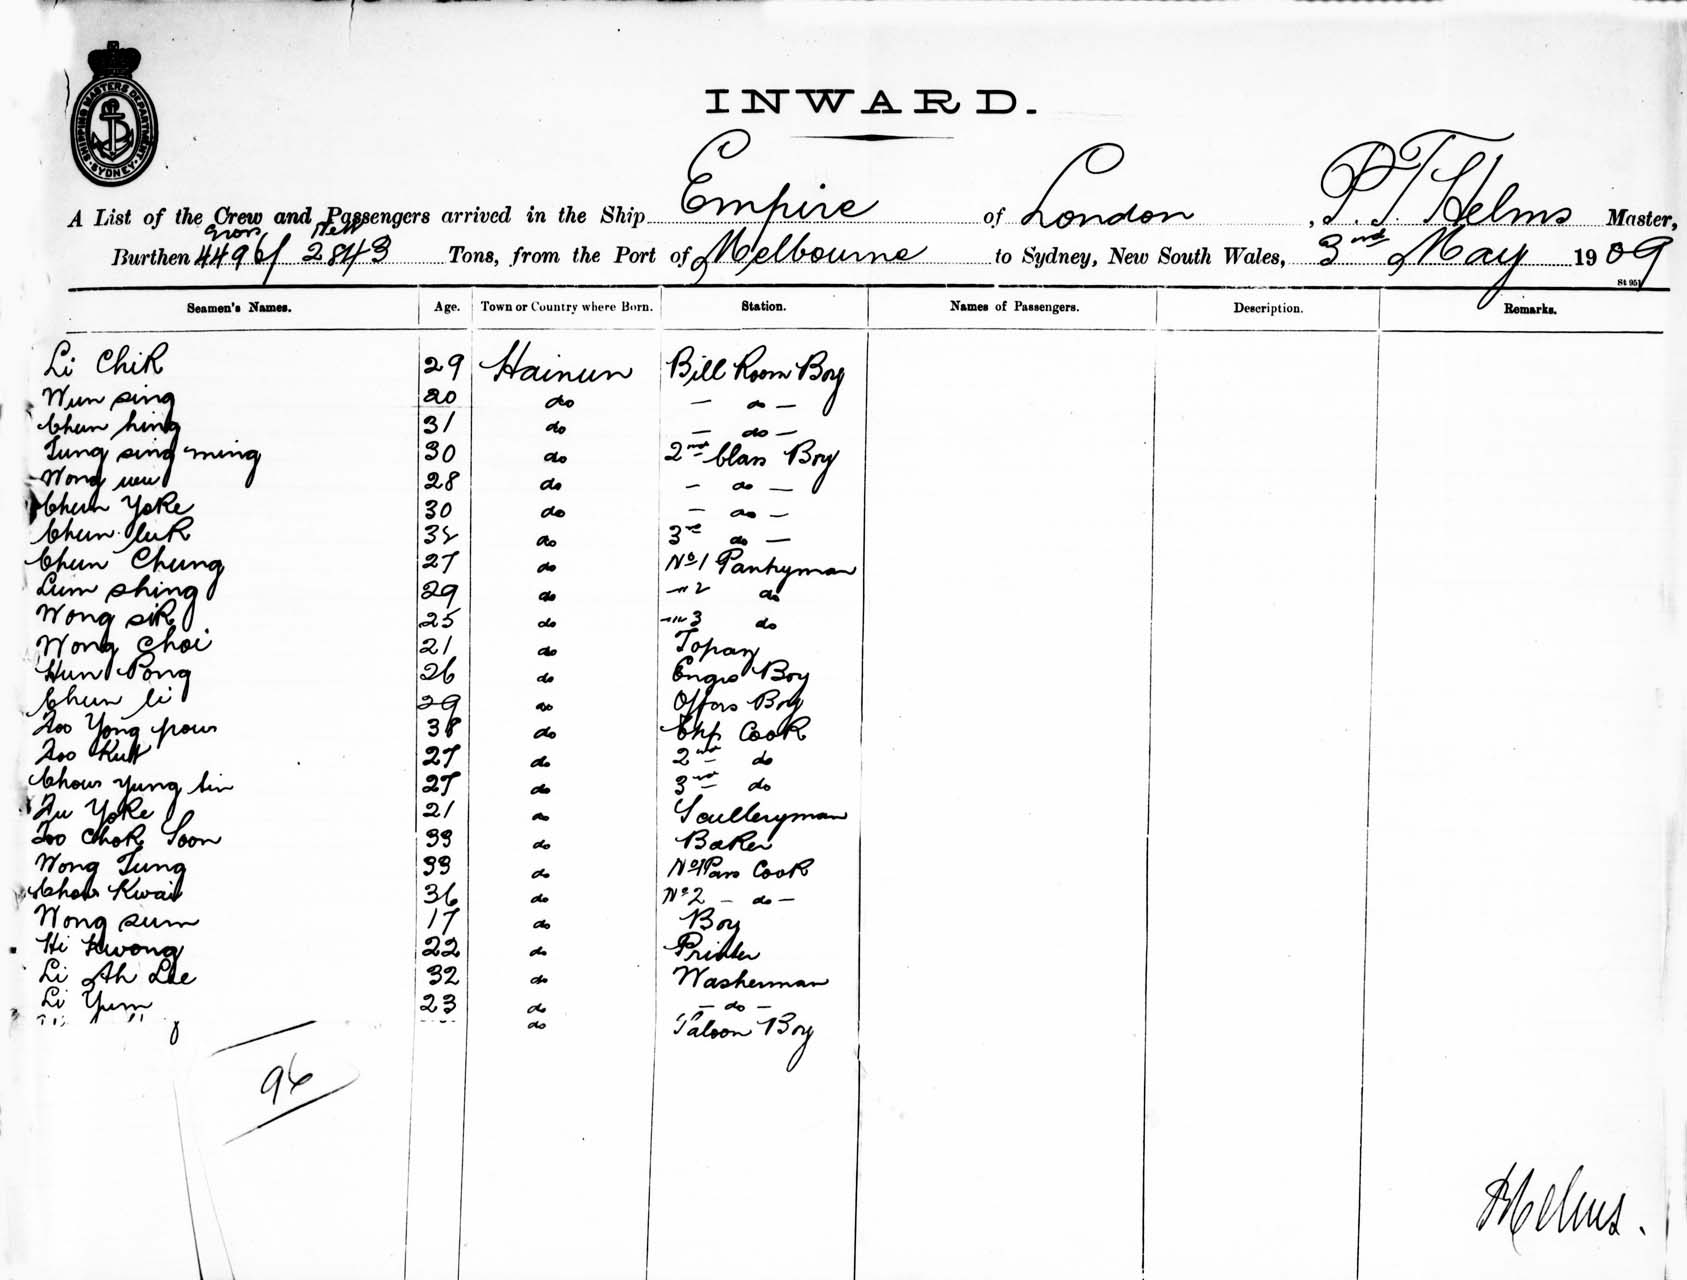 SHIPPING MASTERS DEPARTMENT
SYDNEY
INWARD.
A List of the Crew and Passengers arrived in the Ship Empire of London, P. T. Helms Master,
Gross Nett
Burthen 4496/2843 Tons, from the Port of Melbourne to Sydney, New South Wales, 3rd May 1909
St 951
Seamen's Names. Age. Town or Country where Born. Station. Names of Passengers. Description. Remarks.
Li Chik 29 Hainun Bill Room Boy
Wun sing 20 do — do —
Chun hing 31 do — do —
Tung sing ming 30 do 2nd Class Boy
Wong 28 do — do —
Chun Yoke 30 do — do —
Chun luk 32 do 3rd do —
Chun Chung 27 do No 1 Pantryman
Lum shing 29 do 2 do
Wong sik 25 do 3 do
Wong Choi 21 do Topay
Hun Pong 26 do Engrs Boy
Chun li 29 do Offors Boy
Foo Yong pow 38 do Chf Cook
Foo Kut 27 do 2nd do
Chow yung sin 27 do 3rd do
Fu Yoke 21 do Sculleryman
Foo Chok Soon 33 do Baker
Wong Tung 33 do No 1 Pass Cook
Chow Kwai 36 do No 2 — do —
Wong sum 17 do Boy
Hi kwong 22 do Printer
Li Ah Lee 32 do Washerman
Li Yum 23 do — do —
do Saloon Boy
96
PTHelms.